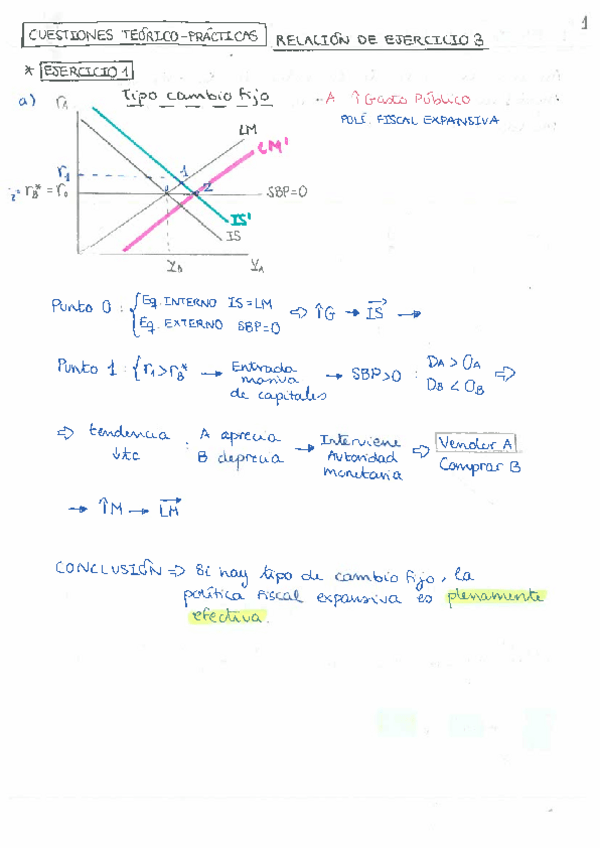 1
CUESTIONES TEÓRICO-PRÁCTICAS RELACIÓN DE EJERCICIO 3
* EJERCICIO 1
a) Tipo cambio fijo - A ↑ Gasto Público
POLÍ. FISCAL EXPANSIVA
LM
LM'
r₁
1
2
= r_B* = r₀
SBP=0
IS'
IS
Y_A
Punto 0 : { Eq. INTERNO IS=LM ⇨ ↑G → IS →
Eq. EXTERNO SBP=0
Punto 1 : { r₁>r_B* → Entrada masiva de capitales → SBP>0 : D_A > O_A ⇨
D_B < O_B
⇨ tendencia ↓tc : A aprecia → Interviene Autoridad monetaria ⇨ Vender A
B deprecia Comprar B
→ ↑M → LM
CONCLUSIÓN ⇒ Si hay tipo de cambio fijo, la
política fiscal expansiva es plenamente
efectiva.